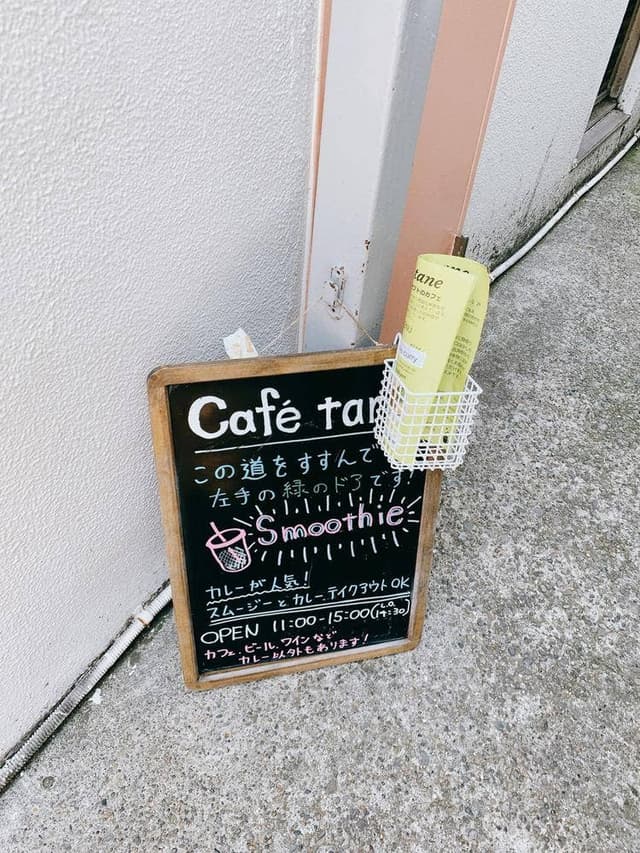 Café tan
この道をすすんで
左手の緑のドアです!
Smoothie
カレーが人気!
スムージーとカレー、テイクアウトOK
OPEN 11:00-15:00(L.O 14:30)
カフェ、ビール、ワインなど
カレー以外もあります!
tane
のカフェ
curry